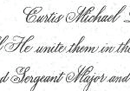 Curtis Michael
He unite them in the
Sergeant Major and